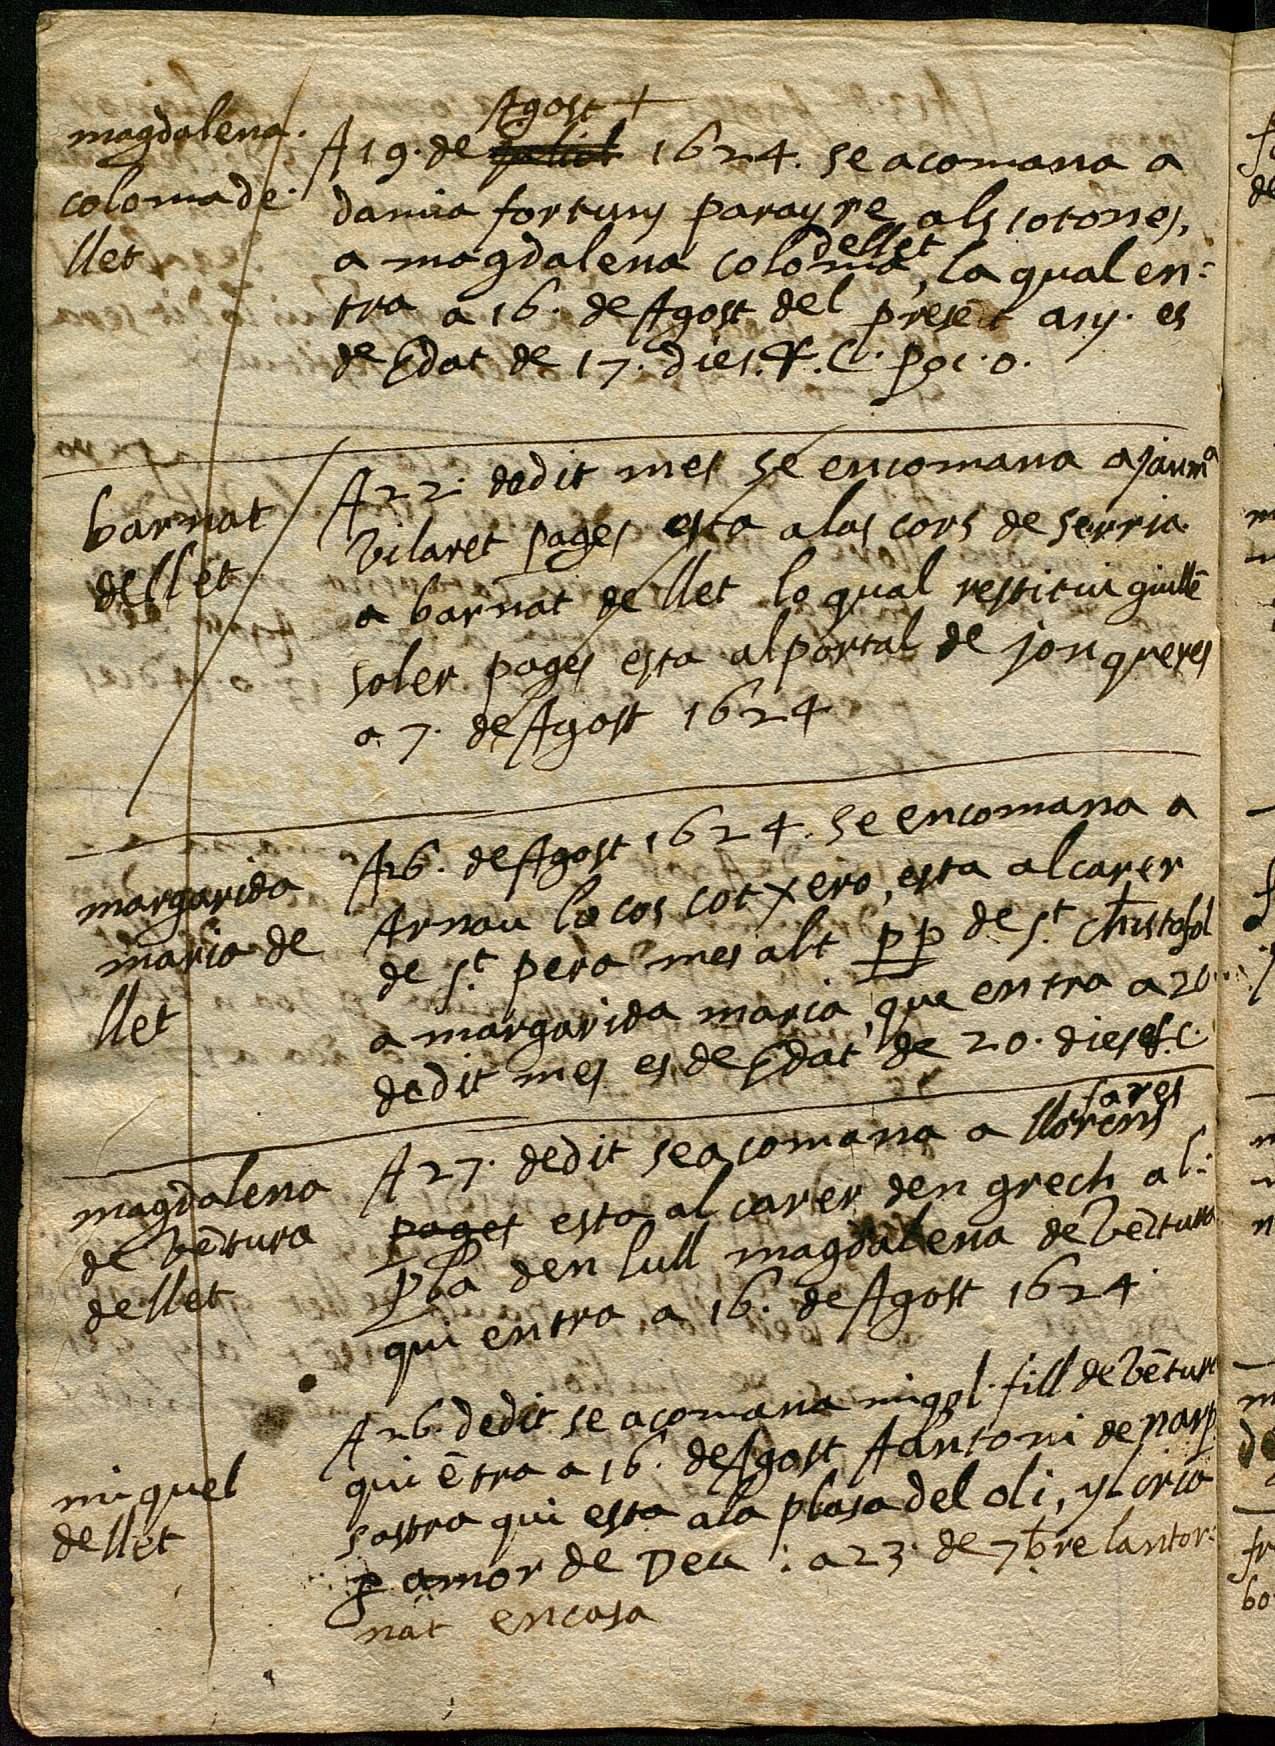 magdalena.
coloma de
llet
Agost +
A 19. de juliol 1624. se acomana a
damia fortuny parayre als cotones,
dellet
a magdalena coloma, la qual en-
tra a 16. de Agost del presēt any. es
de Edat de 17. dies.
barnat
de llet
A 22. de dit mes se encomana a jaumᵃ
vilaret pages esta a las cors de serria
a barnat de llet lo qual restitui guillē
soler pages esta al portal de jonqueres
a 7. de Agost 1624
margarida
maria de
llet
A 26. de Agost 1624. se encomana a
Arnau la cos cotxero, esta al carer
de Sᵗ. pera mes alt pp de Sᵗ. Christofol
a margarida maria, que entra a 20
de dit mes es de Edat de 20. dies
magdalena
de vētura
de llet
sares
A 27. de dit se acomana a llorens
pages esta al carer den grech al:
pla den lull magdalena de vētura
qui entra a 16. de Agost 1624.
miquel
de llet
A 26. de dit se acomana miqel. fill de vētura
qui ētra a 16. de Agost A antoni de narp
sastra qui esta a la plasa del oli, y cria
p amor de Deu : a 23. de 7bre lan tor:
nat en casa